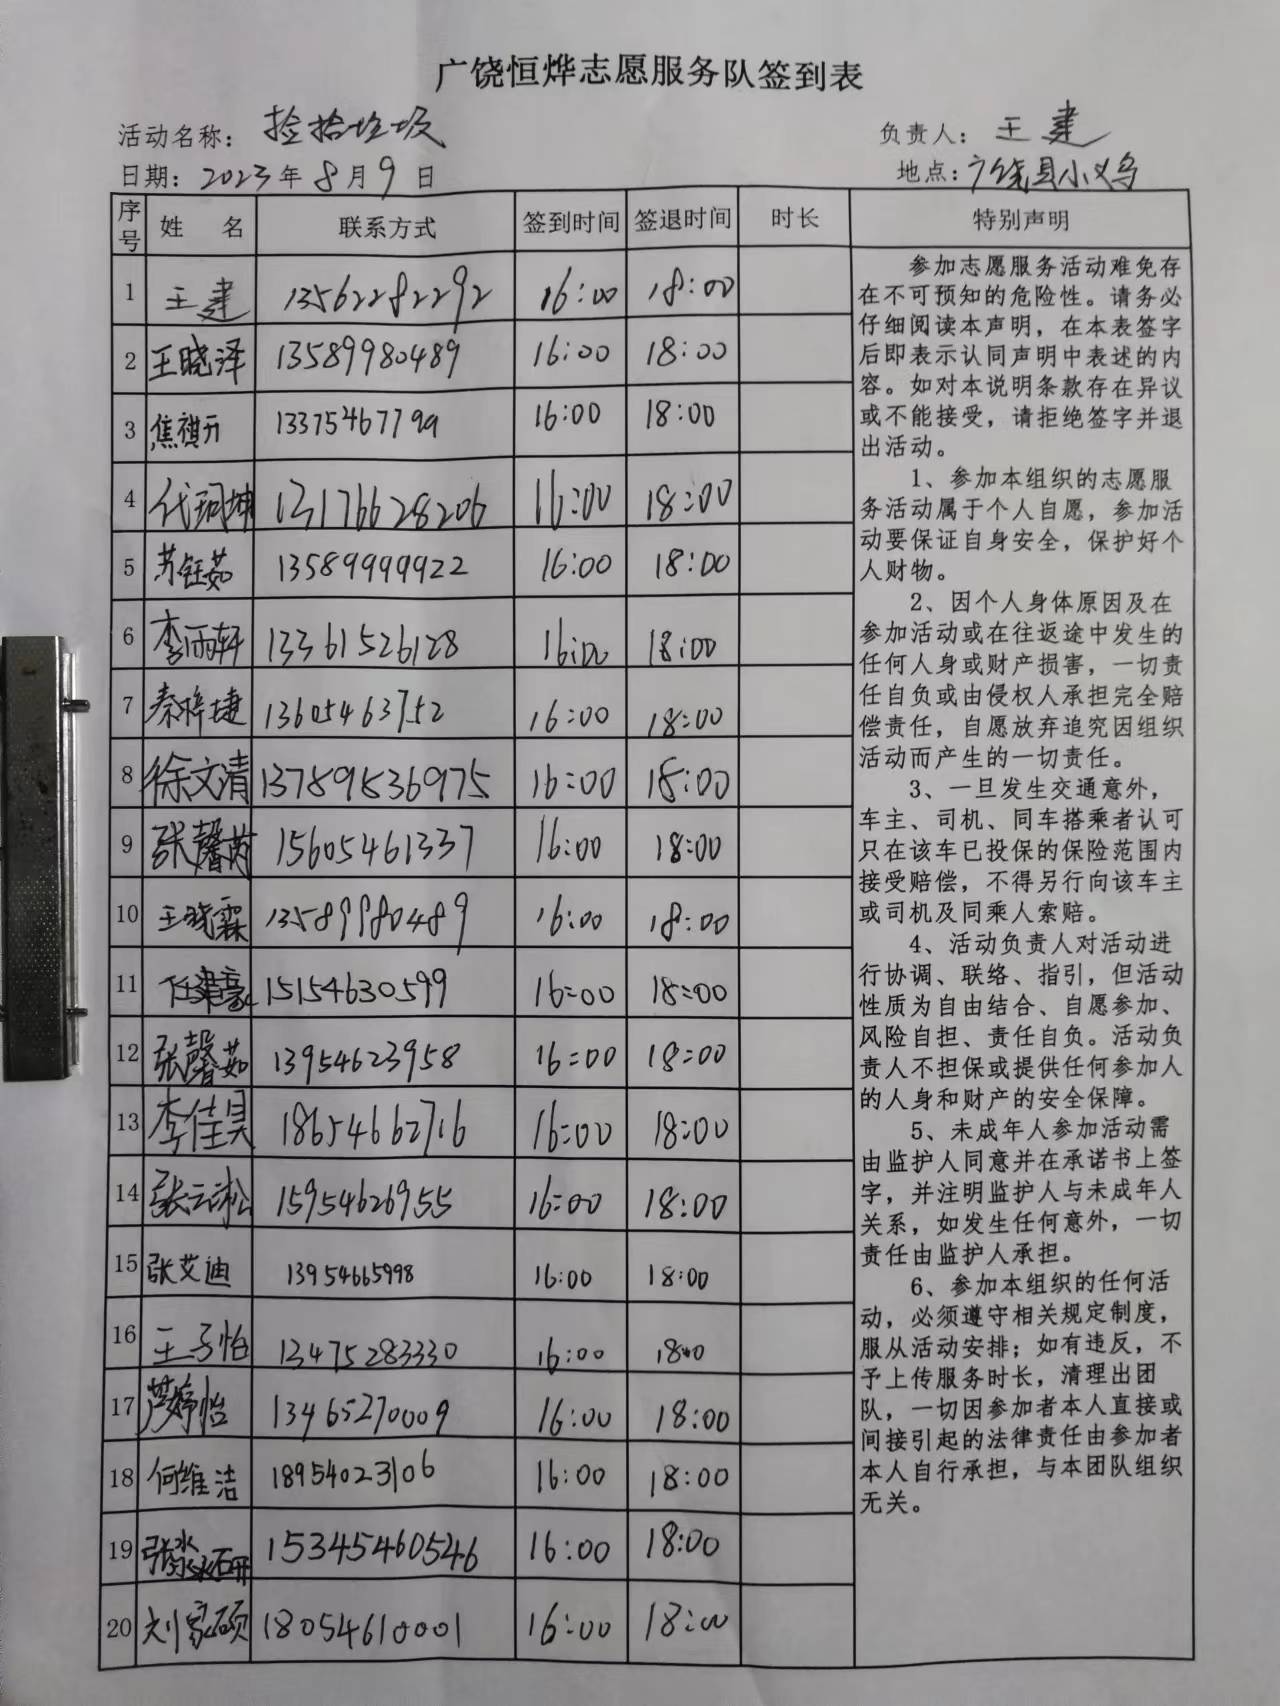 广饶恒烨志愿服务队签到表
活动名称: 捡拾垃圾 负责人: 王建
日期: 2023年8月9日 地点:广饶县小义乌
序号 姓名 联系方式 签到时间 签退时间 时长 特别声明
1 王建 13562282292 16:00 18:00
2 王晓泽 13589980489 16:00 18:00
3 焦祺升 13375467799 16:00 18:00
4 代珂坤 13176628206 16:00 18:00
5 苏钰茹 13589999922 16:00 18:00
6 李雨轩 13361526128 16:00 18:00
7 秦梓捷 13605463752 16:00 18:00
8 徐文清 13789536975 16:00 18:00
9 张馨茜 15605461337 16:00 18:00
10 王晓霖 13589980489 16:00 18:00
11 任建豪 15154630599 16:00 18:00
12 张馨茹 13954623958 16:00 18:00
13 李佳昊 18654662716 16:00 18:00
14 张云淞 15954626955 16:00 18:00
15 张艾迪 13954665998 16:00 18:00
16 王子怡 13475283330 16:00 18:00
17 芦婷怡 13465270009 16:00 18:00
18 何维洁 18954023106 16:00 18:00
19 张淼研 15345460546 16:00 18:00
20 刘家硕 18054610001 16:00 18:00
参加志愿服务活动难免存
在不可预知的危险性。请务必
仔细阅读本声明，在本表签字
后即表示认同声明中表述的内
容。如对本说明条款存在异议
或不能接受，请拒绝签字并退
出活动。
1、参加本组织的志愿服
务活动属于个人自愿，参加活
动要保证自身安全，保护好个
人财物。
2、因个人身体原因及在
参加活动或在往返途中发生的
任何人身或财产损害，一切责
任自负或由侵权人承担完全赔
偿责任，自愿放弃追究因组织
活动而产生的一切责任。
3、一旦发生交通意外，
车主、司机、同车搭乘者认可
只在该车已投保的保险范围内
接受赔偿，不得另行向该车主
或司机及同乘人索赔。
4、活动负责人对活动进
行协调、联络、指引，但活动
性质为自由结合、自愿参加、
风险自担、责任自负。活动负
责人不担保或提供任何参加人
的人身和财产的安全保障。
5、未成年人参加活动需
由监护人同意并在承诺书上签
字，并注明监护人与未成年人
关系，如发生任何意外，一切
责任由监护人承担。
6、参加本组织的任何活
动，必须遵守相关规定制度，
服从活动安排；如有违反，不
予上传服务时长，清理出团
队，一切因参加者本人直接或
间接引起的法律责任由参加者
本人自行承担，与本团队组织
无关。